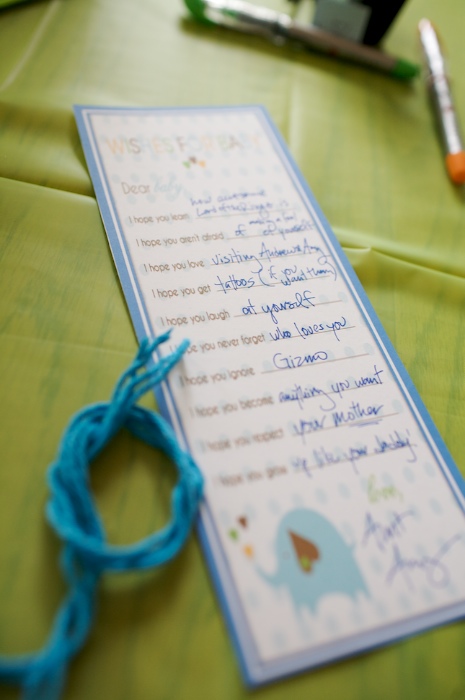 WISHES FOR BABY
Dear Baby,
how awesome
I hope you learn Lord of the Rings is
I hope you aren't afraid of
I hope you love visiting
I hope you get tattoos (if you want them)
I hope you laugh at yourself
I hope you never forget who loves you
I hope you ignore Gizmo
I hope you become anything you want
I hope you respect your mother
I hope you grow up like your daddy!
love,
Aunt
Amy